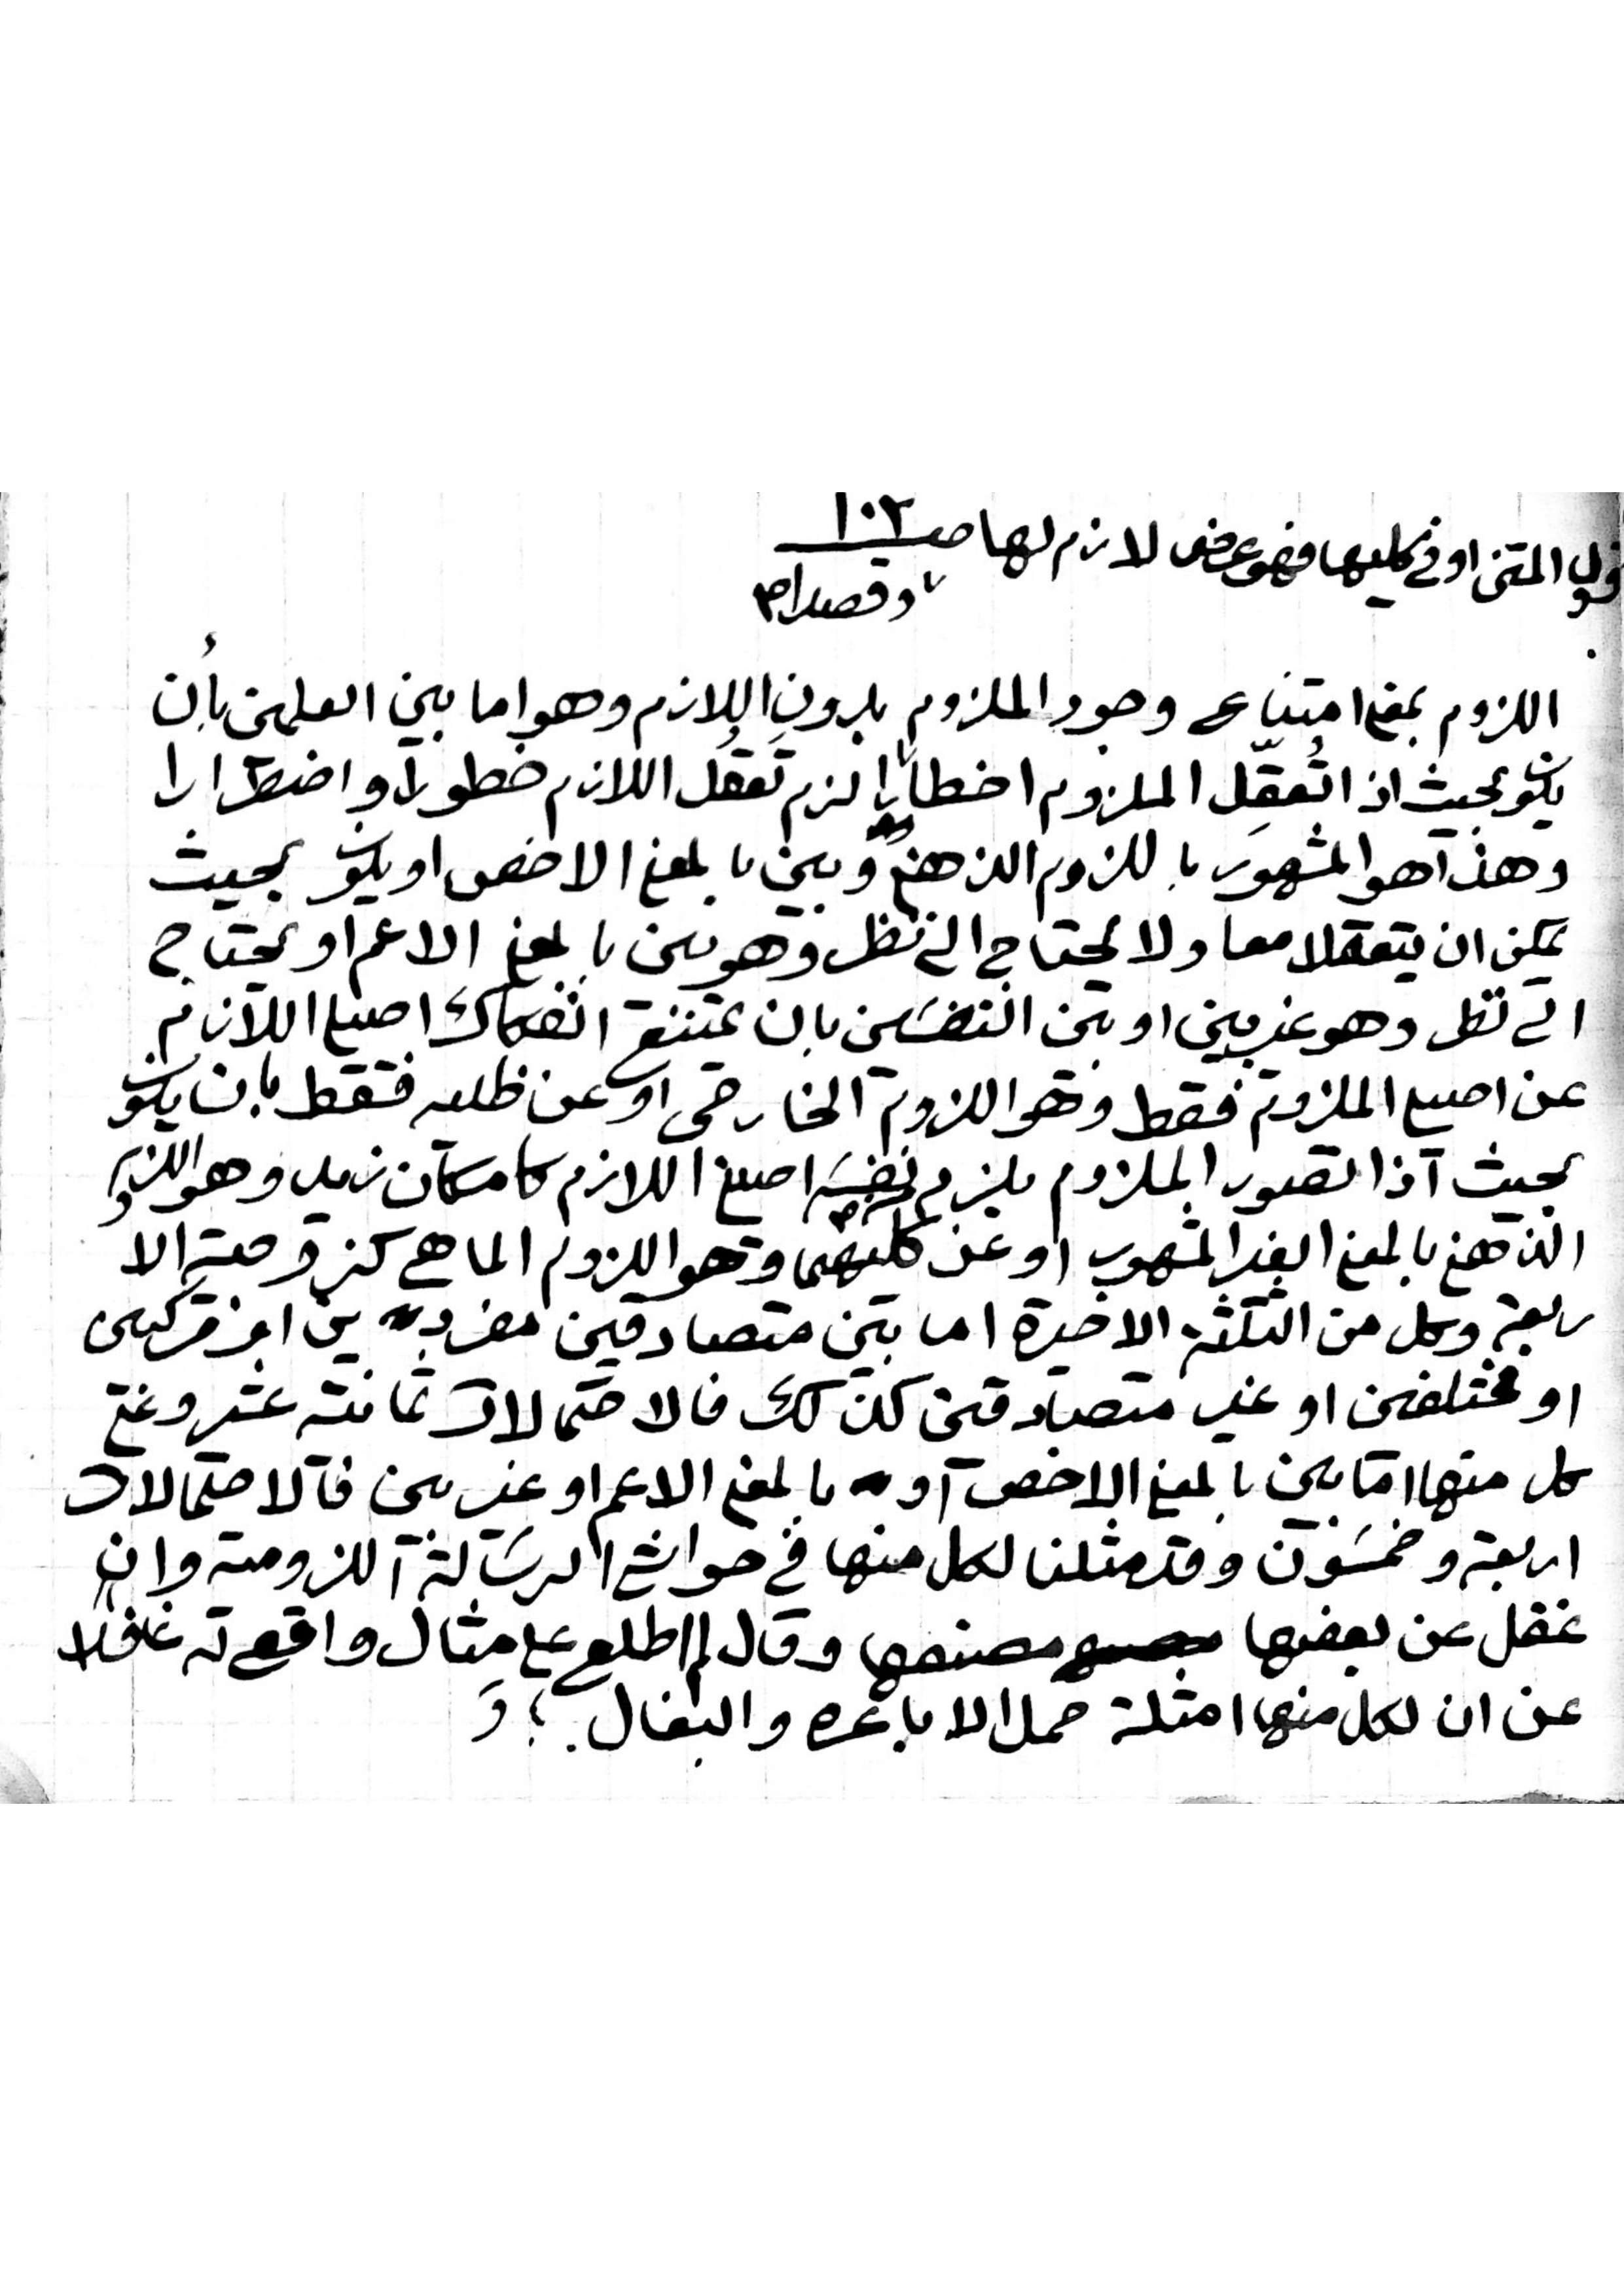 قول المتن او في كليهما فهو عرض لازم لها صـ ١٠٢
اللزوم بمعنى امتناع وجود الملزوم بدون اللازم وهو اما بين العلمين بأن
يكون بحيث اذا تُعقِّل الملزوم اخطارا لزم تعقل اللازم خطورا او اضطرارا
وهذا هو المشهور باللزوم الذهني وبين بالمعنى الاخص او يكون بحيث
يمكن ان يتعقلا معا ولا يحتاج الى نظر وهو بين بالمعنى الاعم او يحتاج
الى نظر وهو غير بين او بين النفسين بان يمتنع انفكاك اصيل اللازم
عن اصيل الملزوم فقط وهو اللزوم الخارجي او عن ظليه فقط بان يكون
بحيث اذا تصور الملزوم يلزم نفسَه اصيل اللازم كامكان زيد وهو اللزوم
الذهني بالمعنى الغير المشهور او عن كليهما وهو اللزوم الماهي كزوجية الا
ربعة وكل من الثلثة الاخيرة اما بين متصادقين مفردين او مركبين
او مختلفين او غير متصادقين كذلك فالاحتمالات ثمانية عشر وغى
كل منها اما بين بالمعنى الاخص او بالمعنى الاعم او غير بين فالاحتمالات
اربعة وخمسون وقد مثلنا لكل منها في حواشي الرسالة اللزومية وان
غفل عن بعضها مصنفها وقال لم اطلع على مثال واقعي له غافلا
عن ان لكل منها امثلة حمل الاباعره والبغال